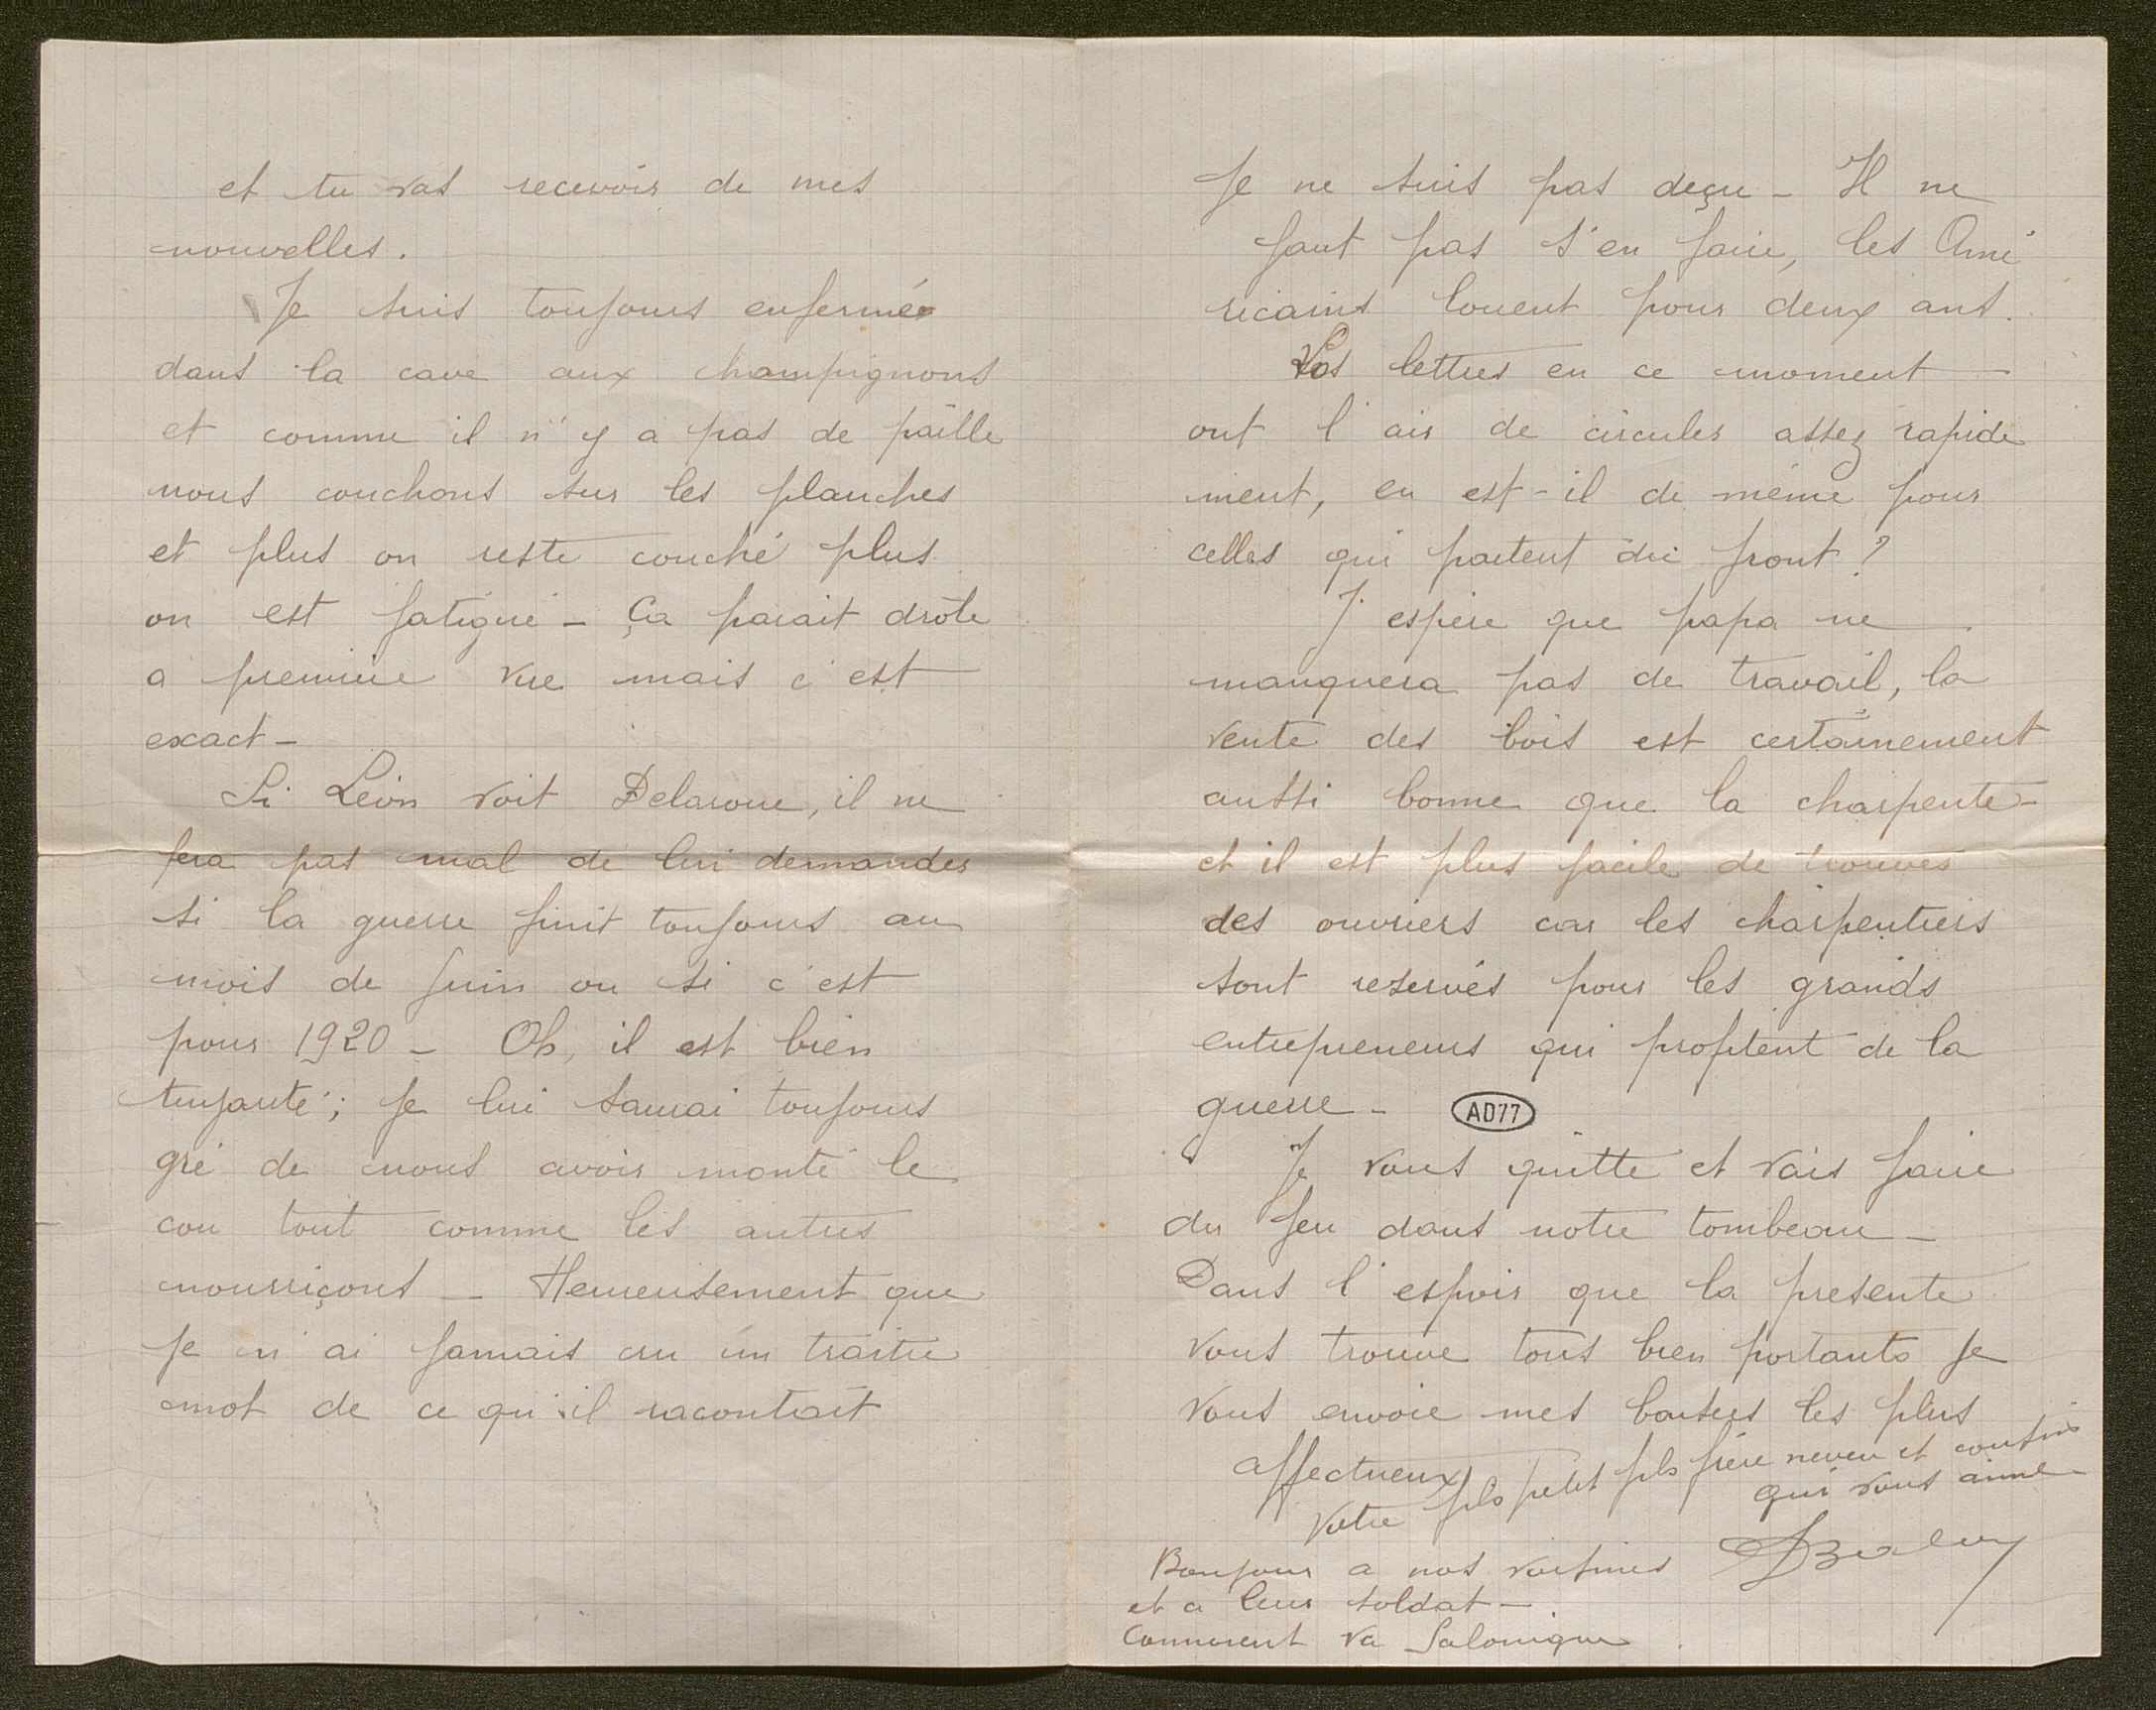 et tu vas recevoir de mes
nouvelles.
Je suis toujours enfermé
dans la cave aux champignons
et comme il n'y a pas de paille
nous couchons sur les planches
et plus on reste couché plus
on est fatigué - Ça parait drôle
a premiere vue mais c'est
exact -
Si Léon voit Delaroue, il ne
fera pas mal de lui demander
si la guerre finit toujours au
mois de juin ou si c'est
pour 1920 - Oh, il est bien
; je lui saurai toujours
gré de nous avoir monté le
cou tout comme les autres
nourriçons - Heureusement que
je n'ai jamais cru un traitre
mot de ce qu'il racontait
Je ne suis pas deçu - Il ne
faut pas s'en faire, les Amé
ricains louent pour deux ans.
Vos lettres en ce moment -
ont l'air de circuler assez rapide
ment, en est-il de même pour
celles qui partent du front ?
J'espère que papa ne
manquera pas de travail, la
vente des bois est certainement
aussi bonne que la charpente -
et il est plus facile de trouver
des ouvriers car les charpentiers
sont reservés pour les grands
entrepreneurs qui profitent de la
guerre -
AD77
Je vous quitte et vais faire
du feu dans notre tombeau -
Dans l'espoir que la presente
vous trouve tous bien portants je
vous envoie mes baisers les plus
affectueux
Votre fils petit fils frère neveu et cousin
qui vous aime
Bonjour a nos voisines
et a leur soldat -
Comment va Salonique